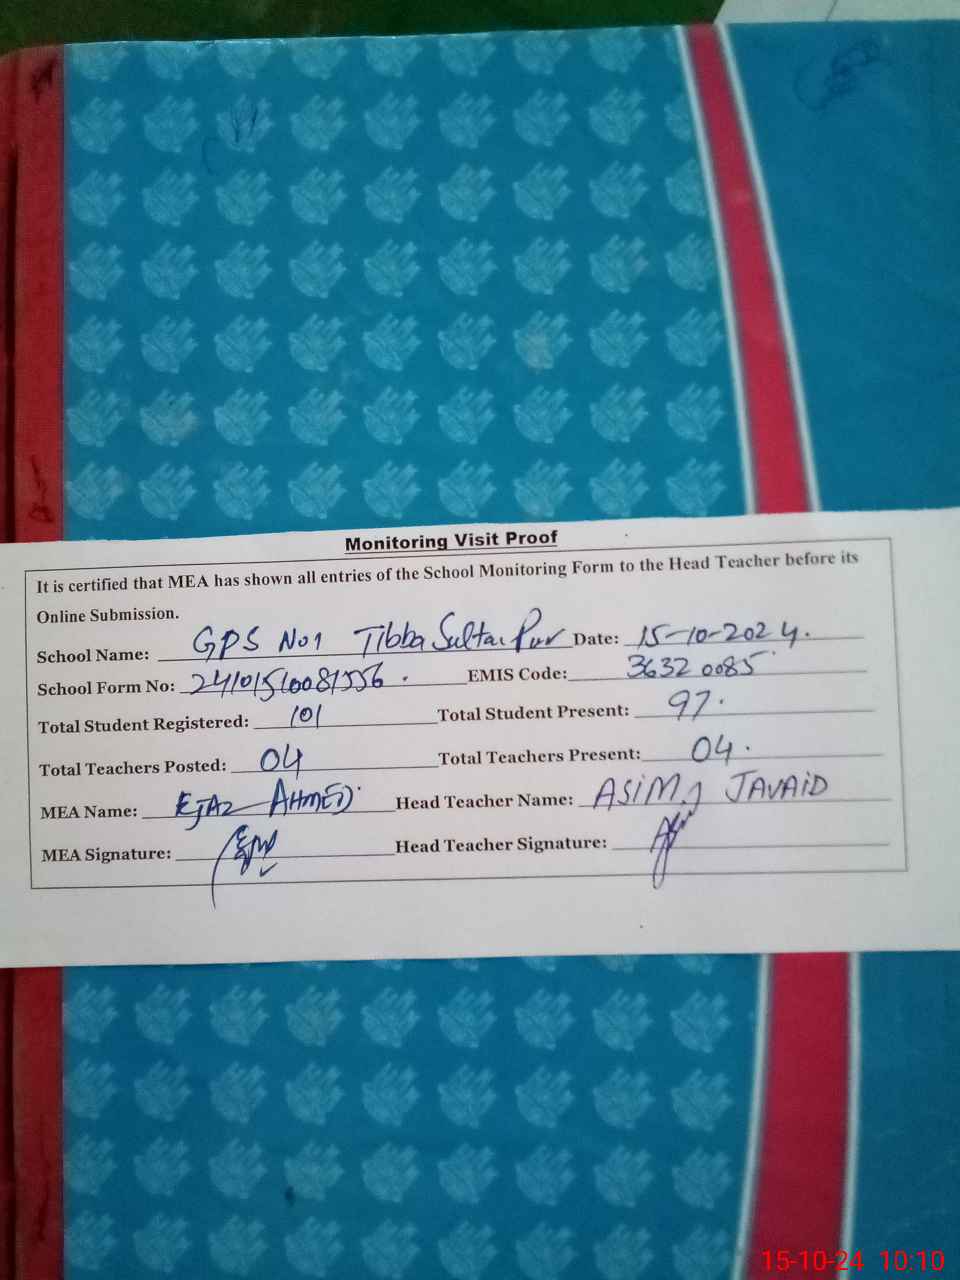 Monitoring Visit Proof
It is certified that MEA has shown all entries of the School Monitoring Form to the Head Teacher before its
Online Submission.
School Name: GPS No1 Tibba Sultan Pur Date: 15-10-2024.
School Form No: 24101510081556. EMIS Code: 36320085
Total Student Registered: 101 Total Student Present: 97.
Total Teachers Posted: 04 Total Teachers Present: 04.
MEA Name: EJAZ AHMED Head Teacher Name: ASIM JAVAID
MEA Signature: Head Teacher Signature:
15-10-24 10:10